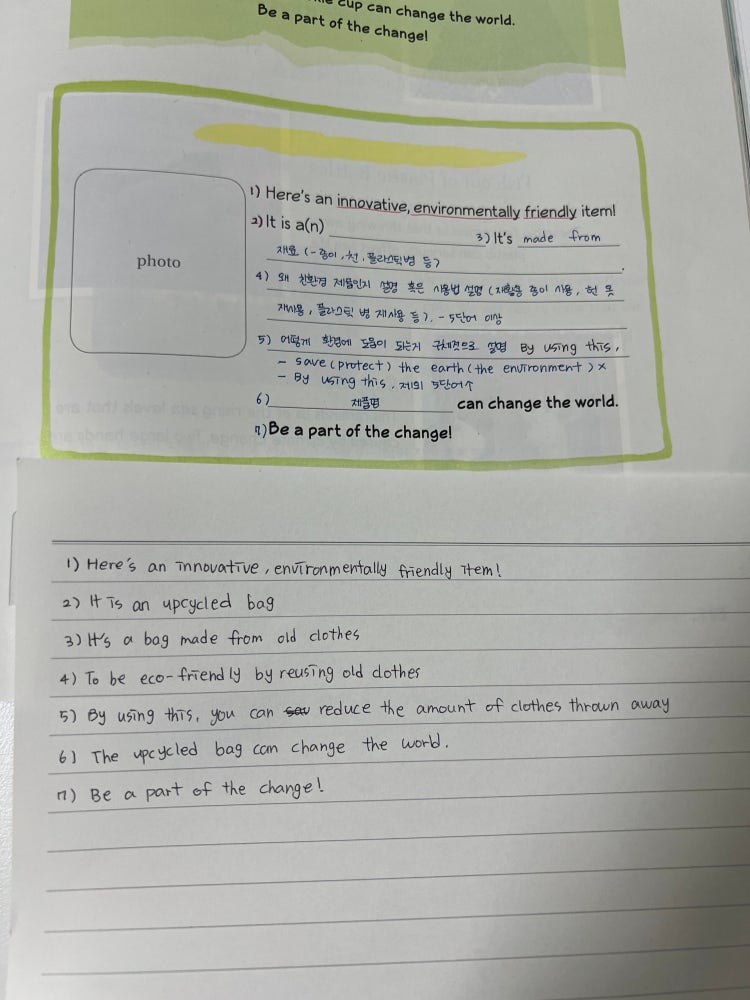 cup can change the world.
Be a part of the change!
photo
1) Here's an innovative, environmentally friendly item!
2) It is a(n)
3) It's made from
재료 (-종이, 천, 플라스틱병 등)
.
4) 왜 친환경 제품인지 설명 혹은 사용법 설명 (재활용 종이 사용, 헌 옷
재사용, 플라스틱 병 재사용 등). - 5단어 이상
5) 어떻게 환경에 도움이 되는지 구체적으로 설명 By using this,
- save (protect) the earth (the environment) x
- By using this, 제외 5단어↑
6) 제품명 can change the world.
7) Be a part of the change!
1) Here's an innovative, environmentally friendly item!
2) It is an upcycled bag
3) It's a bag made from old clothes
4) To be eco-friendly by reusing old clothes
5) By using this, you can reduce the amount of clothes thrown away
6) The upcycled bag can change the world.
7) Be a part of the change!